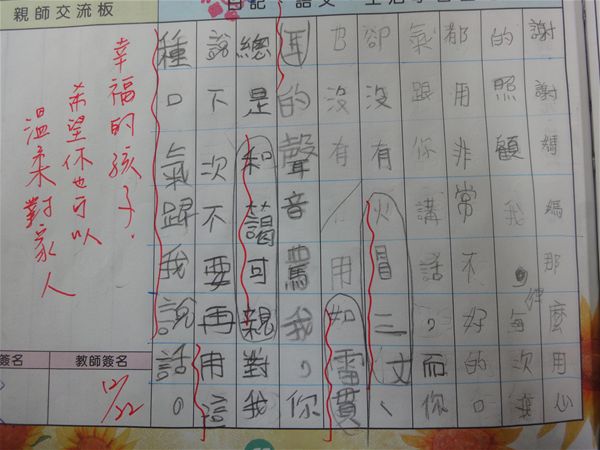 親師交流板
日記
語文
謝謝媽媽那麼用心
的照顧我,每次我
都用非常不好的口
氣跟你講話,而你
卻沒有火冒三丈、
也沒有用如雷貫
耳的聲音罵我,你
總是和藹可親對我
說不次不要再用這
種口氣歸我說話。
幸福的孩子.
希望你也可以
溫柔對家人
簽名
教師簽名
12/22